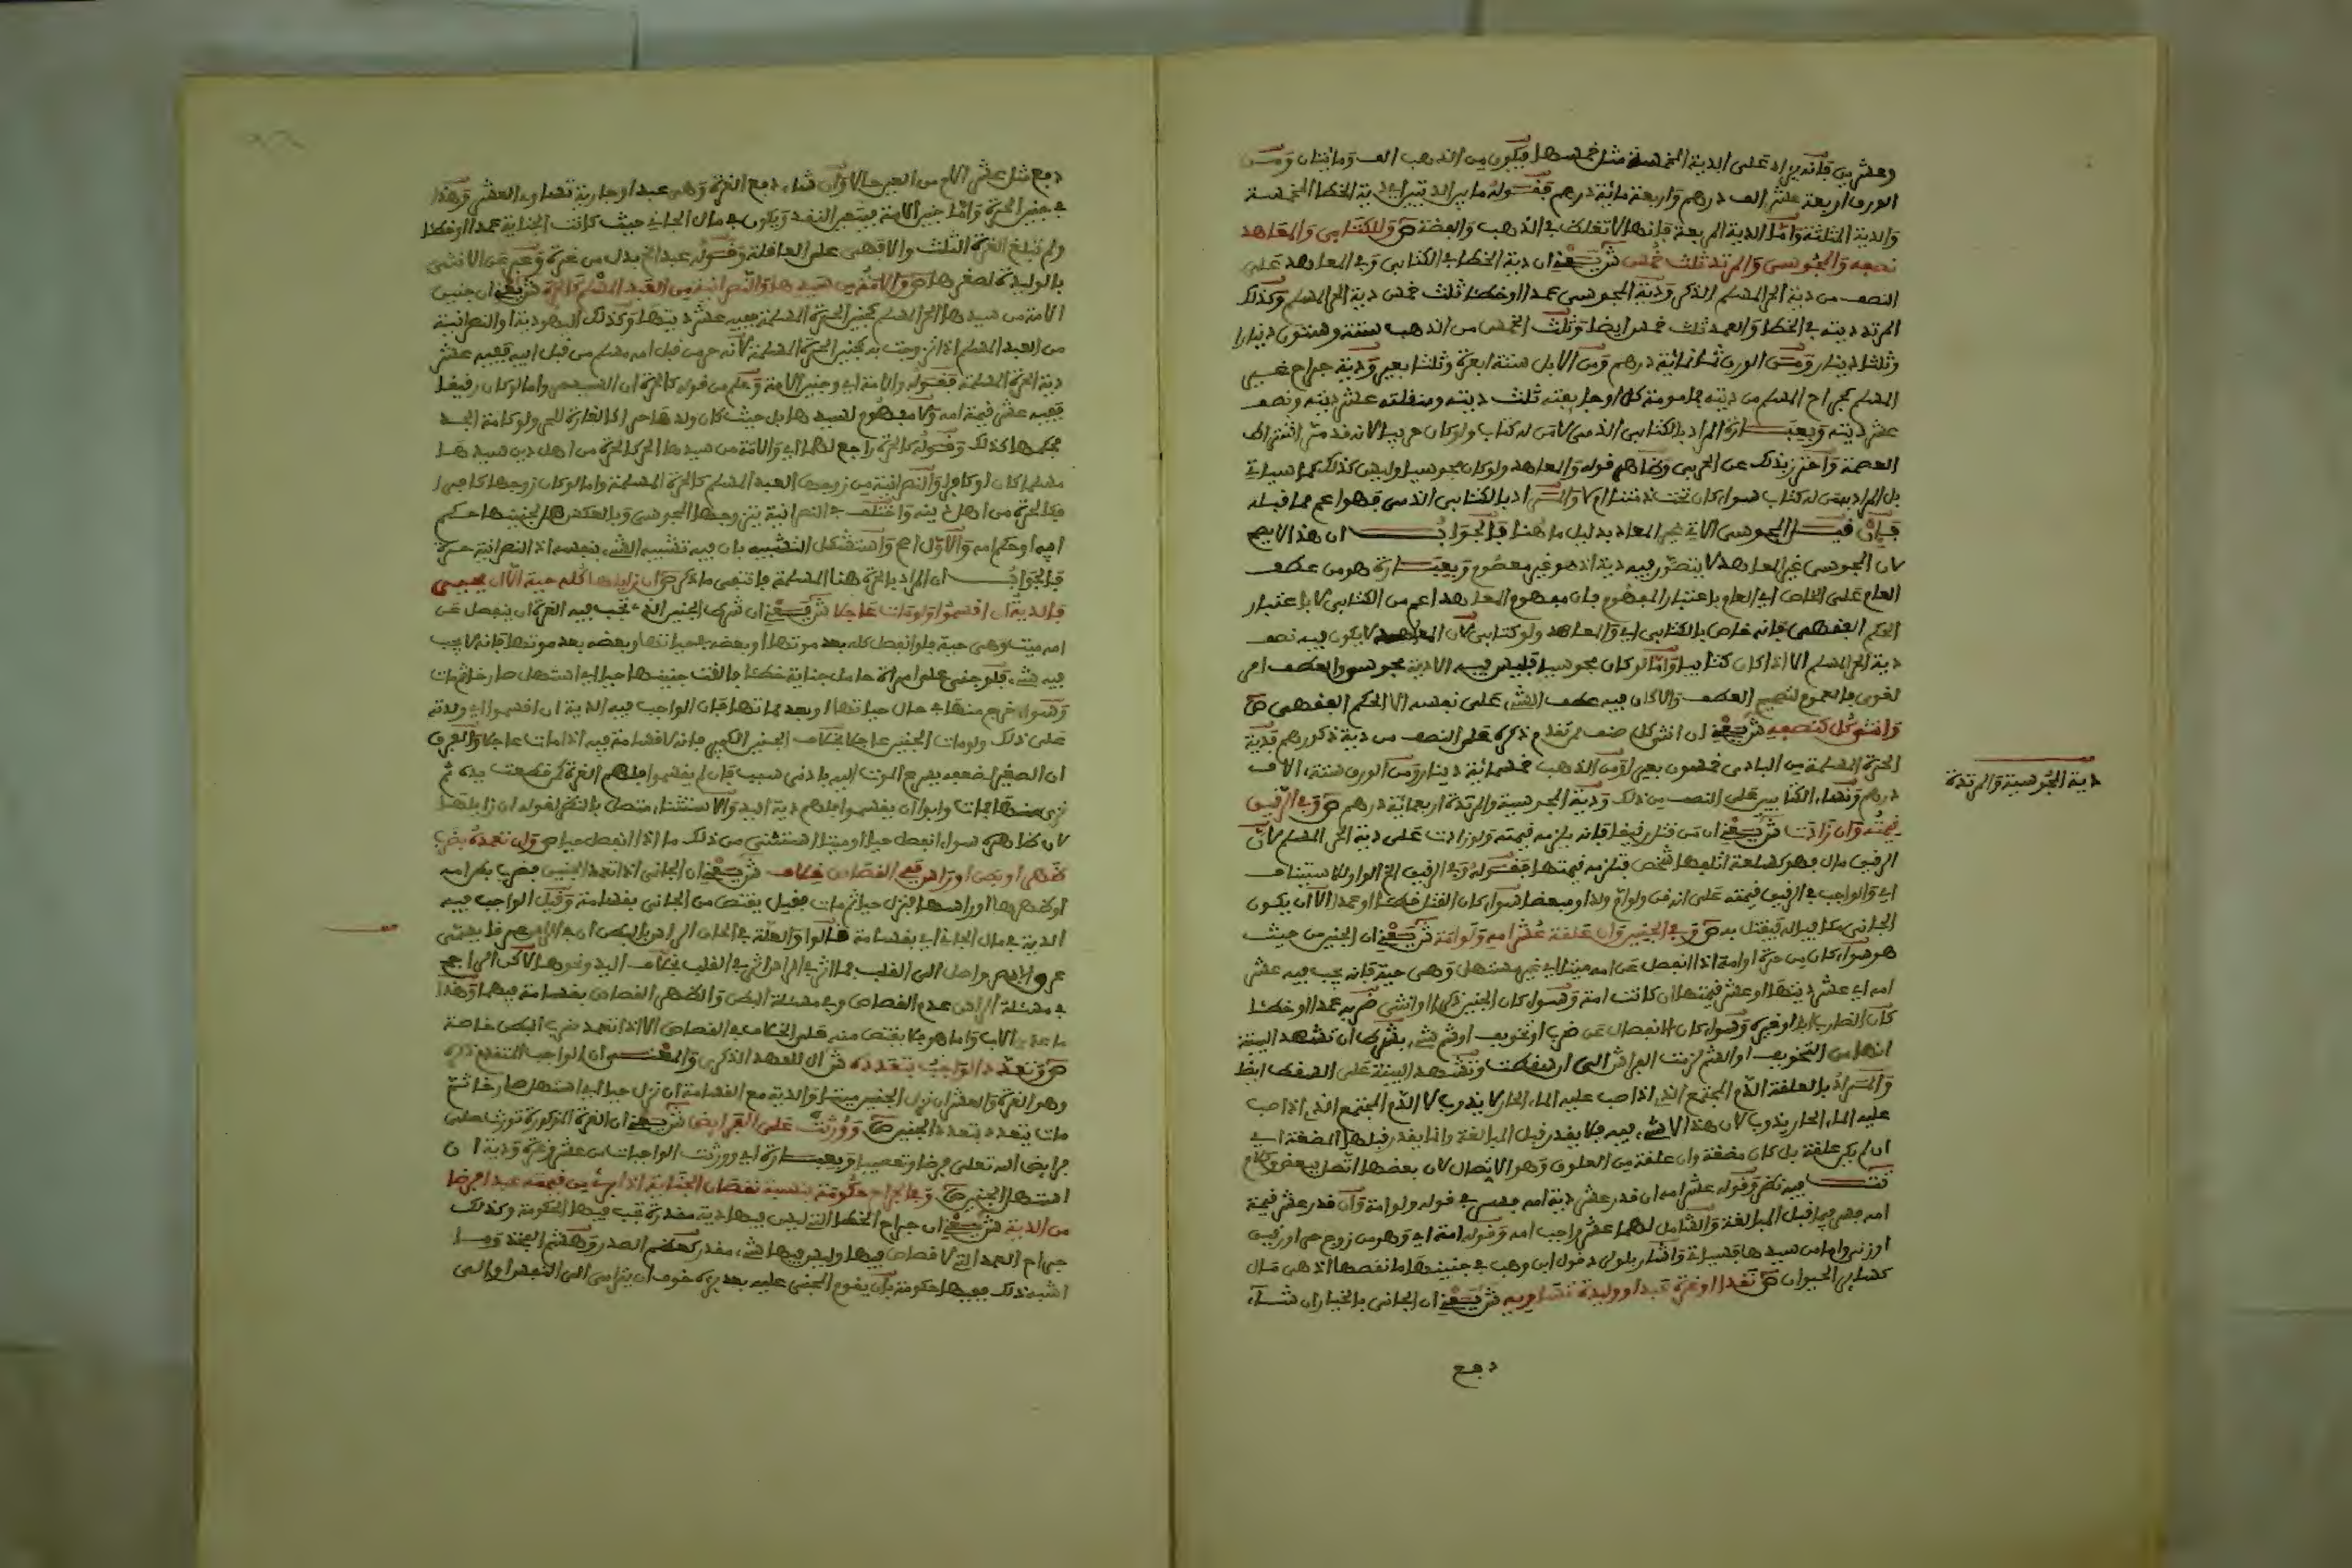 وعشرين فإنه يزاد على الدية المخمسة مثل خمسها فيكون من الذهب الف ومائتان ومن
الورق اربعة عشر الف درهم واربعة مائة درهم فقوله ما بين الديتين اي دية الخطا المخمسة
والدية المثلثة واما الدية المربعة فإنها لا تغلظ في الذهب والفضة ص وللكتابي والمعاهد
نصفه والمجوسي والمرتد ثلث خمس ش يعني ان دية الخطا في الكتابي وفي المعاهد على
النصف من دية الحر المسلم الذكر ودية المجوسي عمدا او خطا ثلث خمس دية الحر المسلم وكذلك
المرتد ديته في الخطا والعمد ثلث خمس ايضا وثلث الخمس من الذهب ستة وستون دينارا
وثلثا دينار ومن الورق ثمانمائة درهم ومن الابل ستة ابعرة وثلثا بعير ودية جراح غير
المسلم كجراح المسلم من ديته فمامومة كل او جايفته ثلث ديته ومنقلته عشر ديته ونصف
عشر ديته وبعبارة المراد بالكتابي الذمي لا من له كتاب ولو كان حربيا لانه قدم اشتراط
العصمة واحترز بذلك عن الحربي وظاهر قوله والمعاهد ولو كان مجوسيا وليس كذلك كما سياتي
بل المراد بمن له كتاب سواء كان تحت ذمتنا ام لا والمراد بالكتابي الذمي فهو اعم مما قبله
فإن قيل المجوسي الاتي غير المعاهد بدليل ما هنا فالجواب ان هذا لا يصح
لان المجوسي غير المعاهد لا يتصور فيه دية اذ هو غير معصوم وبعبارة هو من عطف
العام على الخاص اي العام باعتبار المفهوم فان مفهوم المعاهد اعم من الكتابي لا باعتبار
الحكم الفقهي فإنه خاص بالكتابي اي والمعاهد ولو كتابي لان المعاهد لا يكون فيه نصف
دية الحر المسلم الا اذا كان كتابيا واما لو كان مجوسيا فليس فيه الا دية مجوسي والعطف امر
لغوي فالعموم لتصحيح العطف والا كان فيه عطف الشيء على نفسه الا الحكم الفقهي ص
وانثى كل كنصفه ش يعني ان انثى كل صنف مر تقدم ذكره على النصف من دية ذكورهم فدية
الحرة المسلمة من البادي خمسون بعيرا ومن الذهب خمسمائة دينار ومن الورق ستة الاف
درهم ونساء الكتابيين على النصف من ذلك ودية المجوسية والمرتدة اربعمائة درهم ص وفي الرقيق
قيمته وان زادت ش يعني ان من قتل رقيقا فإنه يلزمه قيمته ولو زادت على دية الحر المسلم لان
الرقيق مال فهو كسلعة اتلفها شخص فتلزمه قيمتها فقوله وفي الرقيق الخ الواو للاستيناف
اي والواجب في الرقيق قيمته على انه قن ولو ام ولد او مبعضا سواء كان القتل خطا او عمدا الا ان يكون
الجاني مكافيا له فيقتل به ص وفي الجنين وان علقة عشر امه ولو امة ش يعني ان الجنين من حيث
هو سواء كان من حرة او امة اذا انفصل عن امه ميتا اي غير مستهل وهي حية فإنه يجب فيه عشر
امه اي عشر ديتها او عشر قيمتها ان كانت امة وسواء كان الجنين ذكرا او انثى ضربه عمدا او خطا
كان الضارب ابا او غيره وسواء كان الانفصال عن ضرب او تخويف او شم شيء بشرط ان تشهد البينة
انها من التخويف او الشم لزمت الفراش الى ان سقطت وتشهد البينة على السقط ايضا
والمراد بالعلقة الدم المجتمع الذي اذا صب عليه الماء الحار لا يذوب لا الدم المجتمع الذي اذا صب
عليه الماء الحار يذوب لان هذا لا شيء فيه فلا يقدر قبل المبالغة وانما يقدر قبلها المضغة اي
ان لم يكن علقة بل كان مضغة وان علقة من العلوق وهو الاتصال لان بعضها اتصل ببعض وكلام
تت فيه نظر وقوله عشر امه ان قدر عشر دية امه فسر في قوله ولو امة وان قدر عشر قيمة
امه فسر فيما قبل المبالغة والشامل لهما عشر واجب امه وقوله امة اي وهو من زوج حر او رقيق
او زنى واما من سيدها فسياتي واشار بلو لرد قول ابن وهب في جنينها ما نقصها اذ هي مال
كسائر الحيوان ص نقدا او غرة عبدا ووليدة تساويه ش يعني ان الجاني بالخيار ان شاء
دفع
دية المجوسية والمرتدة
دفع مثل عشر الام من العين حالا وان شاء دفع الغرة وهي عبد او جارية تساوي العشر وهذا
في جنين الحرة واما جنين الامة فيتعين النقد ويكون في مال الجاني حيث كانت الجناية عمدا او خطا
ولم تبلغ الغرة الثلث والا فهي على العاقلة وقوله عبد الخ بدل من غرة وعبر عن الانثى
بالوليدة لصغرها ص والامة من سيدها والنصرانية من العبد المسلم كالحرة ش يعني ان جنين
الامة من سيدها الحر المسلم كجنين الحرة المسلمة ففيه عشر ديتها وكذلك اليهودية او النصرانية
من العبد المسلم اذا تزوجت به كجنين الحرة المسلمة لانه حر من قبل امه مسلم من قبل ابيه ففيه عشر
دية الحرة المسلمة فقوله والامة اي وجنين الامة وعلم من قوله كالحرة ان السيد حر واما لو كان رقيقا
ففيه عشر قيمة امه ولا مفهوم لسيدها بل حيث كان ولدها حرا كالغارة للحر ولو كامة الجد
فحكمها كذلك وقوله كالحرة راجع لهما اي والامة من سيدها الحر كالحرة من اهل دين سيدها
مسلما كان او كافرا والنصرانية من زوجها العبد المسلم كالحرة المسلمة واما لو كان زوجها كافرا
فكالحرة من اهل دينه واختلف في النصرانية يتزوجها المجوسي وبالعكس هل لجنينها حكم
ابيه او حكم امه والاول اصح واستشكل التشبيه بان فيه تشبيه الشيء بنفسه اذ النصرانية حرة
فالجواب ان المراد بالحرة هنا المسلمة فاقتضى ما ذكر ص ان زايلها كله حية الا ان يحيى
فالدية ان اقسموا ولو مات عاجلا ش يعني ان شرط الجنين الذي تجب فيه الغرة ان ينفصل عن
امه ميتا وهي حية فلو انفصل كله بعد موتها او بعضه في حياتها وبعضه بعد موتها فإنه لا يجب
فيه شيء فلو جنى على امراة حامل جناية خطا فالقت جنينها حيا اي استهل صارخا ثم مات
وسواء خرج منها في حال حياتها او بعد مماتها فإن الواجب فيه الدية ان اقسموا اي ولاته
على ذلك ولو مات الجنين عاجلا بخلاف الجنين الكبير فإنه لا قسامة فيه اذا مات عاجلا والفرق
ان الصغير لضعفه يسرع الموت اليه بادنى سبب فإن لم يقسموا فلهم الغرة كمن قطعت يده ثم
نزى منها فمات وابوا ان يقسموا فلهم دية اليد والاستثناء متصل بالنظر لقوله ان زايلها
لان ظاهره سواء انفصل حيا او ميتا استثنى من ذلك ما اذا انفصل حيا ص وان تعمده بضرب
ظهر او بطن او راس ففي القصاص خلاف ش يعني ان الجاني اذا تعمد الجنين بضرب بطن امه
او ظهرها او راسها فنزل حيا ثم مات فقيل يقتص من الجاني بقسامة وقيل الواجب فيه
الدية في مال الجاني اي بقسامة قالوا والعلة في الحاق الراس بالبطن ان في الراس عرقا يسمى
عرق الابهر واصل الى القلب فما اثر في الراس اثر في القلب بخلاف اليد ونحوها لاكن الراجح
في مسئلة الراس عدم القصاص وفي مسئلة البطن والظهر القصاص بقسامة فيهما وهذا
ما عدى الاب واما هو فلا يقتص منه على الخلاف في القصاص الا اذا تعمد ضرب البطن خاصة
ص وتعدد الواجب بتعدده ش ال للعهد الذكري والمعنى ان الواجب المتقدم ذكره
وهو الغرة والعشر ان نزل الجنين ميتا والدية مع القسامة ان نزل حيا اي استهل صارخا ثم
مات يتعدد بتعدد الجنين ص وورث على الفرايض ش يعني ان الغرة المذكورة تورث على
فرايض الله تعلى فرضا وتعصيبا وبعبارة اي وورثت الواجبات من عشر وغرة ودية ان
استهل الجنين ص وفي الجراح حكومة بنسبة نقصان الجناية اذا برئ من قيمته عبدا فرضا
من الدية ش يعني ان جراح الخطا التي ليس فيها دية مقدرة يجب فيها الحكومة وكذلك
جراح العمد التي لا قصاص فيها وليس فيها شيء مقدر كعظم الصدر وهشم الفخذ وما
اشبه ذلك ففيها حكومة بان يقوم المجني عليه بعد برئه خوف ان يترامى الى النفس او الى